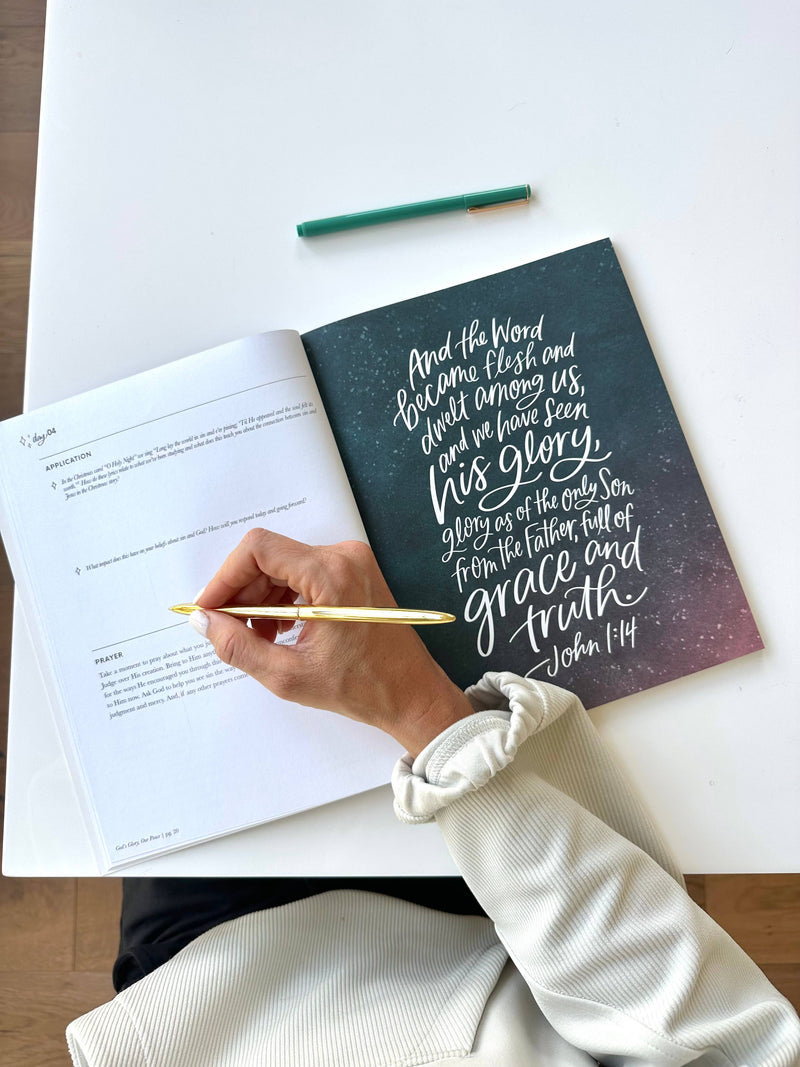 day.04
APPLICATION
In the Christmas carol "O Holy Night" we sing, "Long lay the world in sin and e'er pining, 'Til He appeared and the soul felt its
worth." How do these lyrics relate to what we've been studying and what does this teach you about the connection between sin and
Jesus in the Christmas story?
What impact does this have on your beliefs about sin and God? How will you respond today and going forward?
PRAYER
Take a moment to pray about what you
Judge over His creation. Bring to Him
for the ways He encouraged you through this
to Him now. Ask God to help you see sin the way
judgment and mercy. And, if any other prayers
God's Glory, Our | pg. 39
And the Word
became flesh and
dwelt among us,
and we have seen
his glory,
glory as of the only Son
from the Father, full of
grace and
truth.
- John 1:14